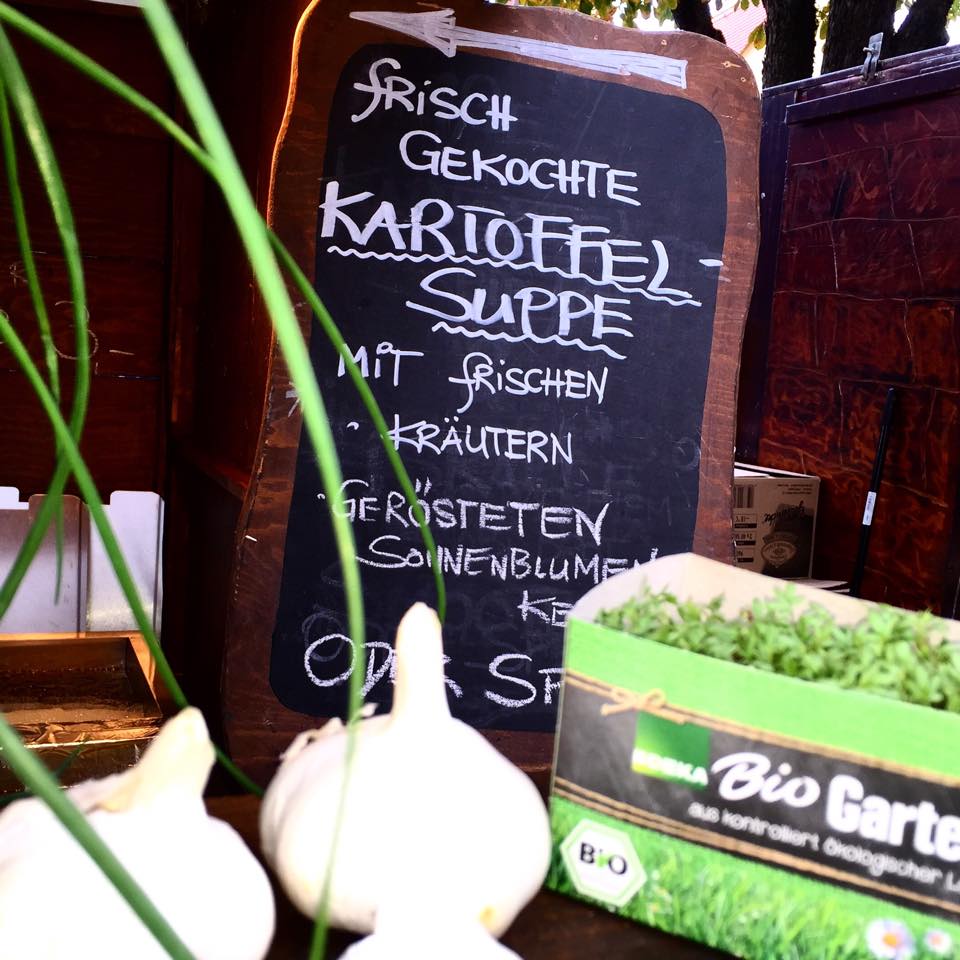 fRiSCH
GEKOCHTE
KARTOFFEL-
SUPPE
MiT fRiSCHEN
· KRÄUTERN
· GERÖSTETEN
SONNENBLUMEN
KE
ODER SP
EDEKA Bio Garte
aus kontrolliert ökologischer L
BiO